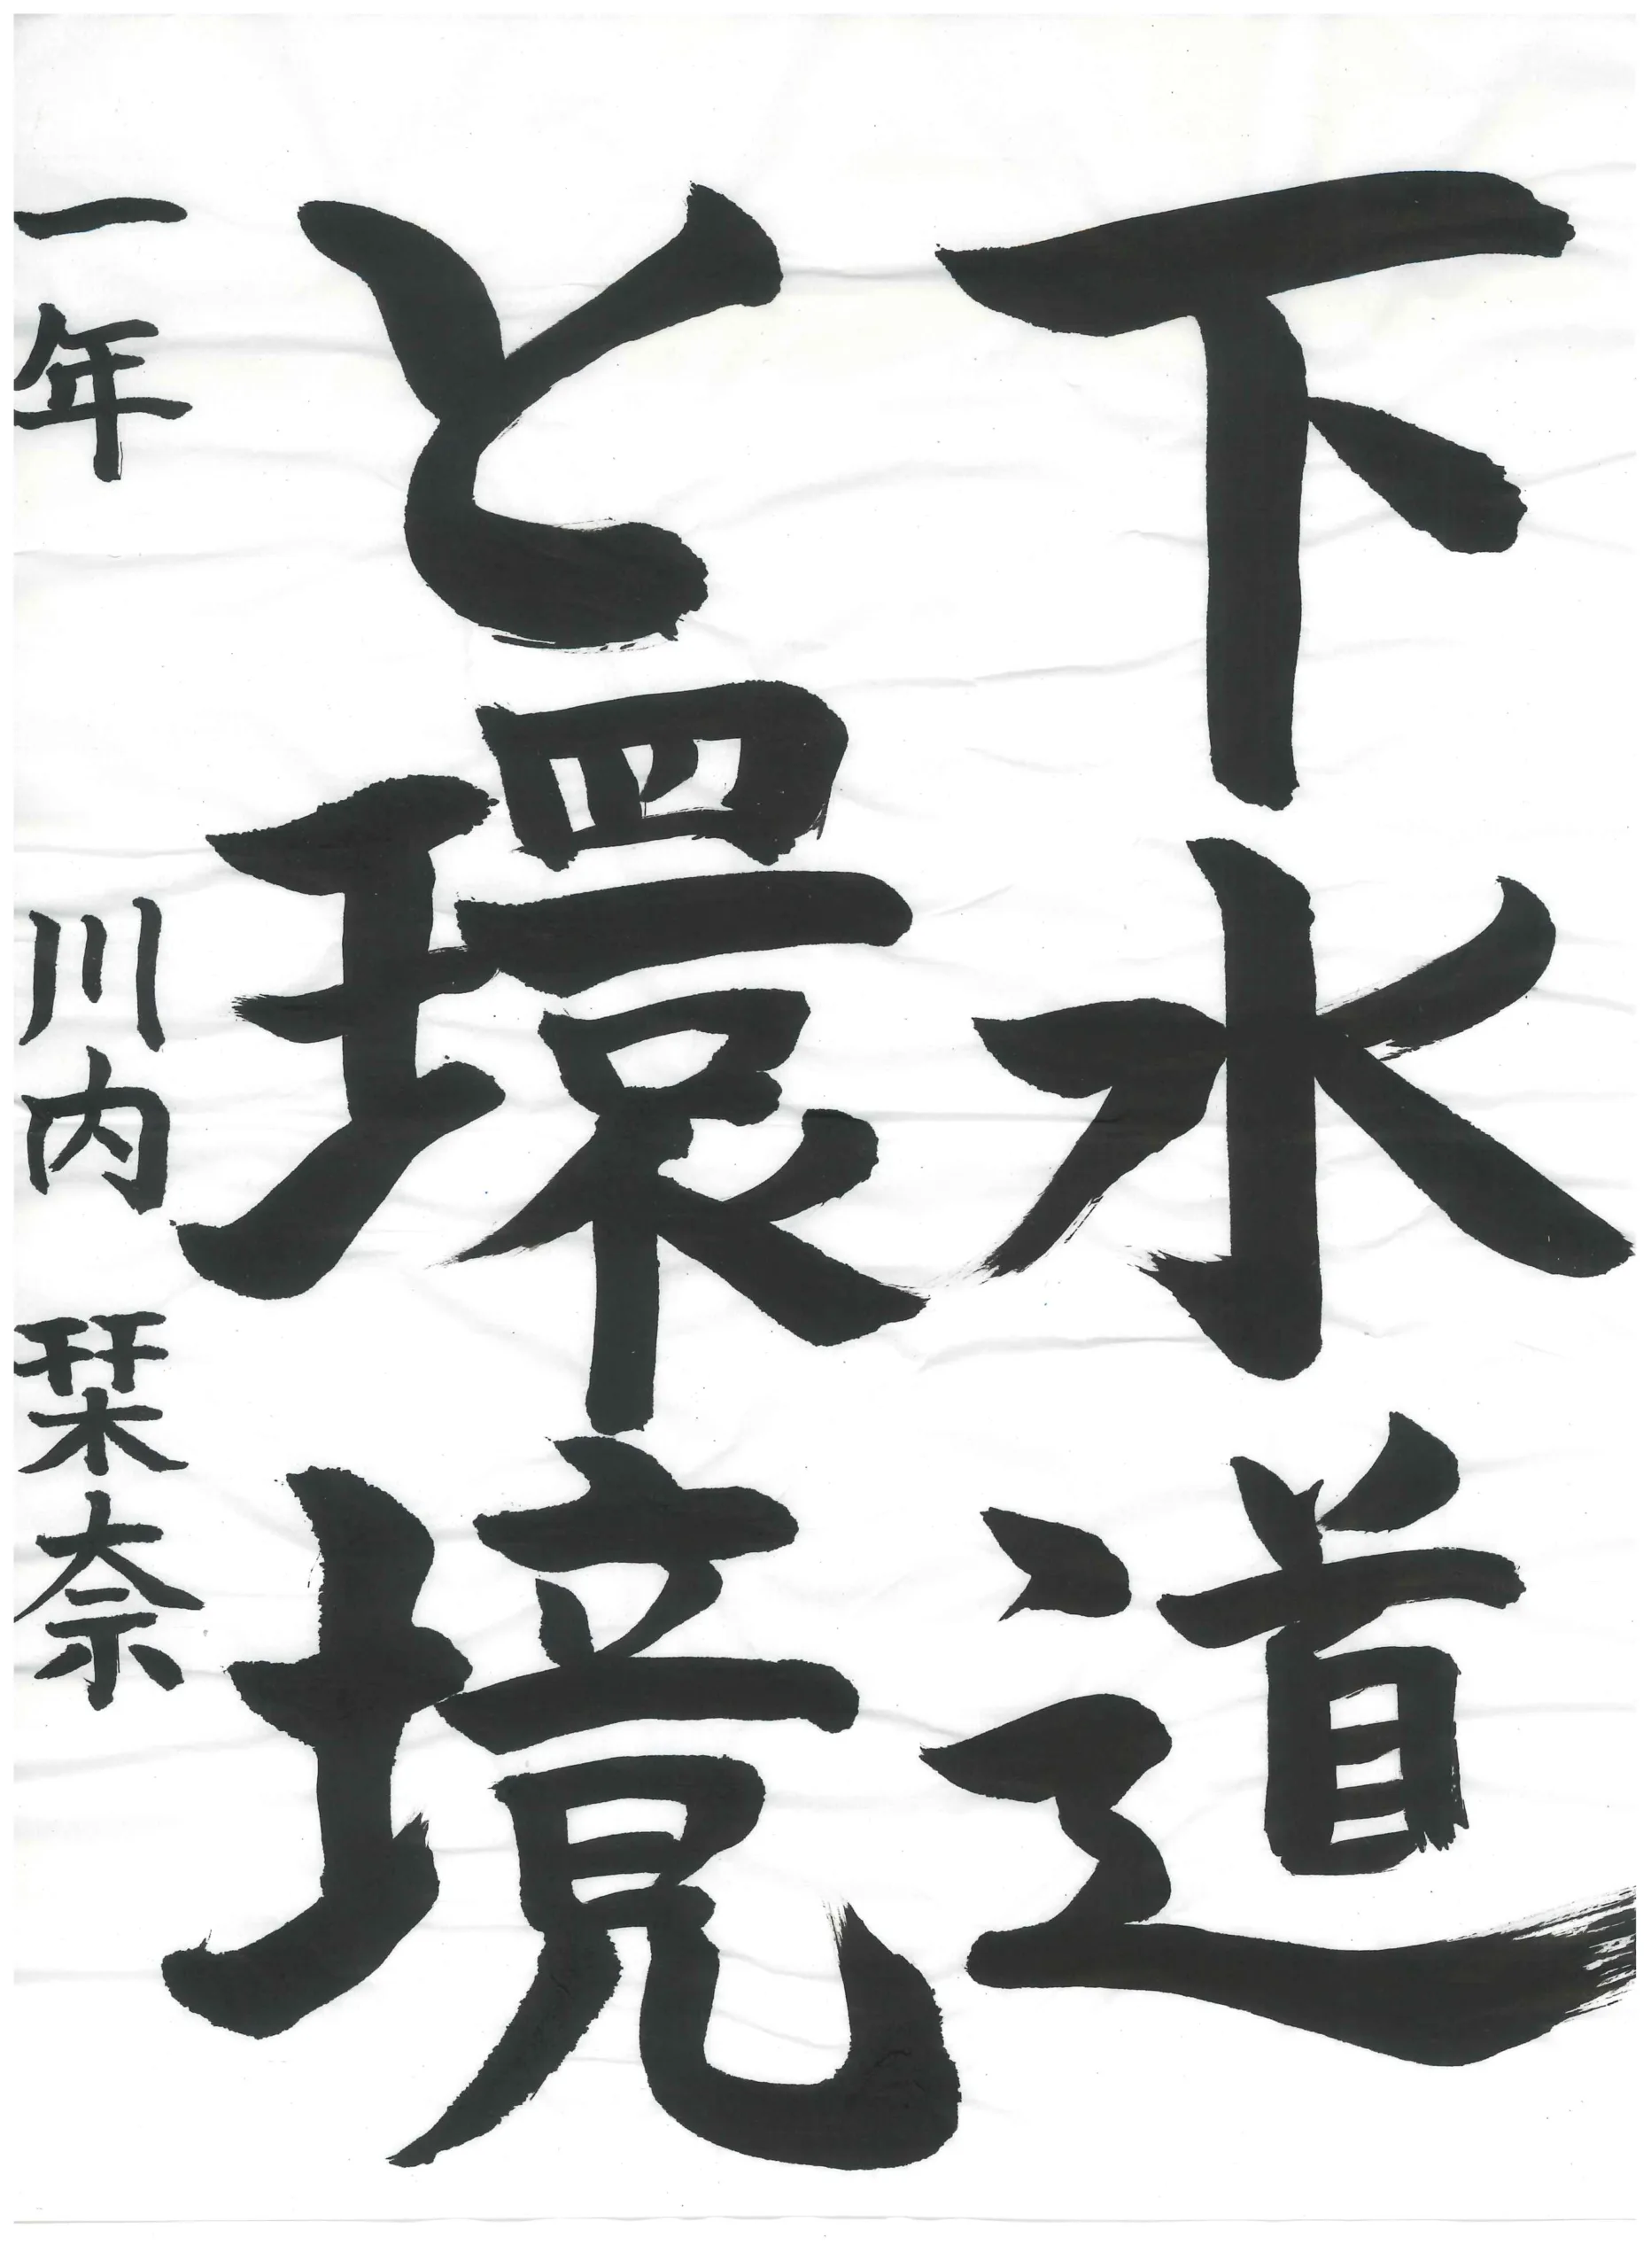 下水道
と環境
一年 川内 栞奈